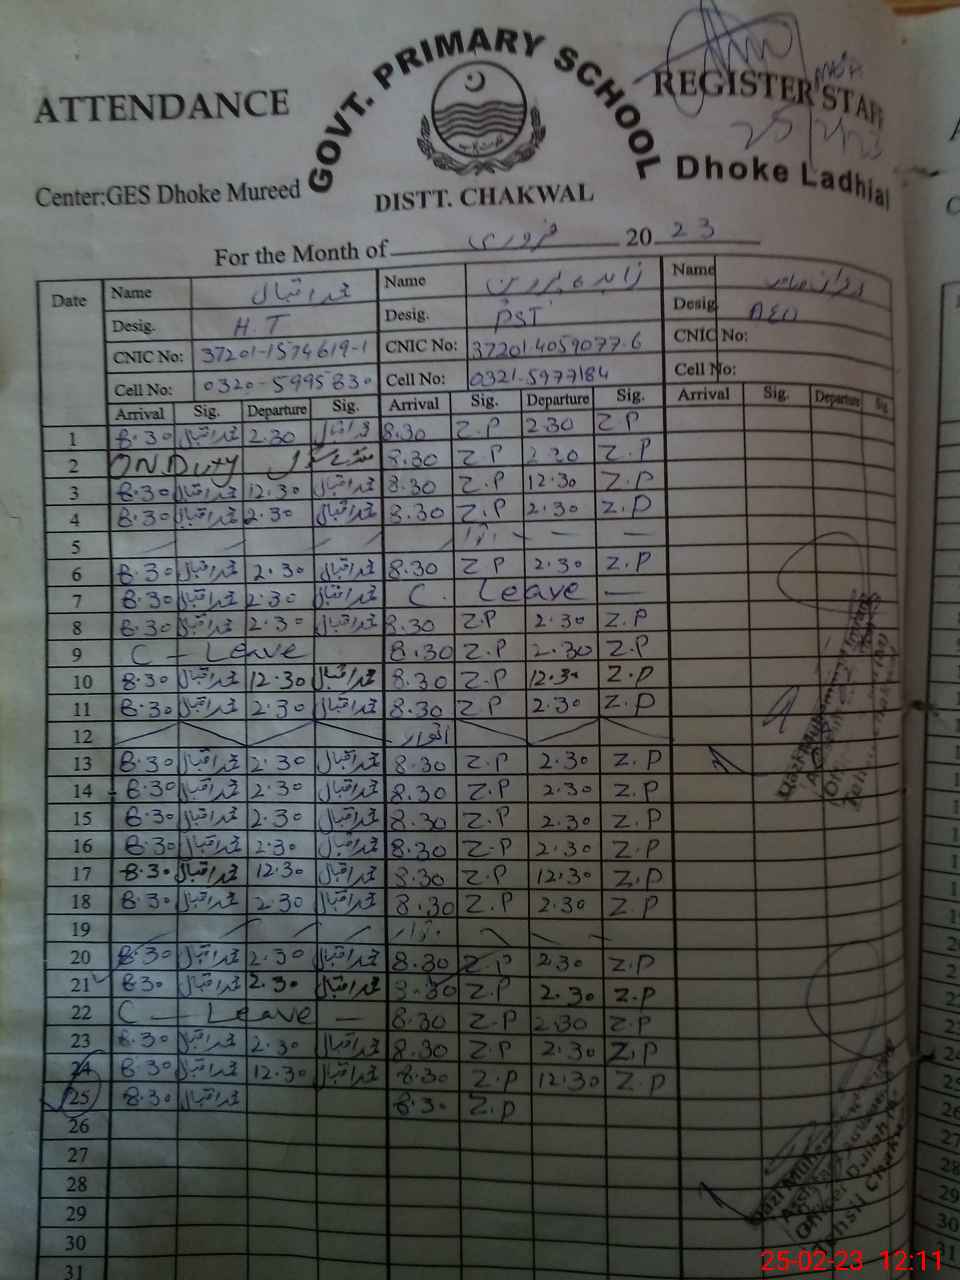 GOVT. PRIMARY SCHOOL
ATTENDANCE REGISTER STAFF
Center:GES Dhoke Mureed DISTT. CHAKWAL Dhoke Ladhial
For the Month of فروری 2023
Date Name محمد اقبال Name زاہدہ پروین Name
Desig. H.T Desig. PST Desig. AEO
CNIC No: 37201-1574619-1 CNIC No: 37201-4059077-6 CNIC No:
Cell No: 0320-5995830 Cell No: 0321-5977184 Cell No:
Arrival Sig. Departure Sig. Arrival Sig. Departure Sig. Arrival Sig. Departure Sig.
1 8.30 محمد اقبال 2.30 محمد اقبال 8.30 Z.P 2.30 Z.P
2 ON Duty 8.30 Z.P 2.30 Z.P
3 8.30 محمد اقبال 12.30 محمد اقبال 8.30 Z.P 12.30 Z.P
4 8.30 محمد اقبال 2.30 محمد اقبال 8.30 Z.P 2.30 Z.P
5 اتوار
6 8.30 محمد اقبال 2.30 محمد اقبال 8.30 Z P 2.30 Z.P
7 8.30 محمد اقبال 2.30 محمد اقبال C. Leave —
8 8.30 محمد اقبال 2.30 محمد اقبال 8.30 Z.P 2.30 Z.P
9 C - Leave 8.30 Z.P 2.30 Z.P
10 8.30 محمد اقبال 12.30 محمد اقبال 8.30 Z.P 12.30 Z.P
11 8.30 محمد اقبال 2.30 محمد اقبال 8.30 Z.P 2.30 Z.P
12 اتوار
13 8.30 محمد اقبال 2.30 محمد اقبال 8.30 Z.P 2.30 Z.P
14 8.30 محمد اقبال 2.30 محمد اقبال 8.30 Z.P 2.30 Z.P
15 8.30 محمد اقبال 2.30 محمد اقبال 8.30 Z.P 2.30 Z.P
16 8.30 محمد اقبال 2.30 محمد اقبال 8.30 Z.P 2.30 Z.P
17 8.30 محمد اقبال 12.30 محمد اقبال 8.30 Z.P 12.30 Z.P
18 8.30 محمد اقبال 2.30 محمد اقبال 8.30 Z.P 2.30 Z.P
19 اتوار
20 8.30 محمد اقبال 2.30 محمد اقبال 8.30 Z.P 2.30 Z.P
21 8.30 محمد اقبال 2.30 محمد اقبال 8.30 Z.P 2.30 Z.P
22 C - Leave — 8.30 Z.P 2.30 Z.P
23 8.30 محمد اقبال 2.30 محمد اقبال 8.30 Z.P 2.30 Z.P
24 8.30 محمد اقبال 12.30 محمد اقبال 8.30 Z.P 12.30 Z.P
25 8.30 محمد اقبال 8.30 Z.P
26
27
28
29
30
31
25-02-23 12:11